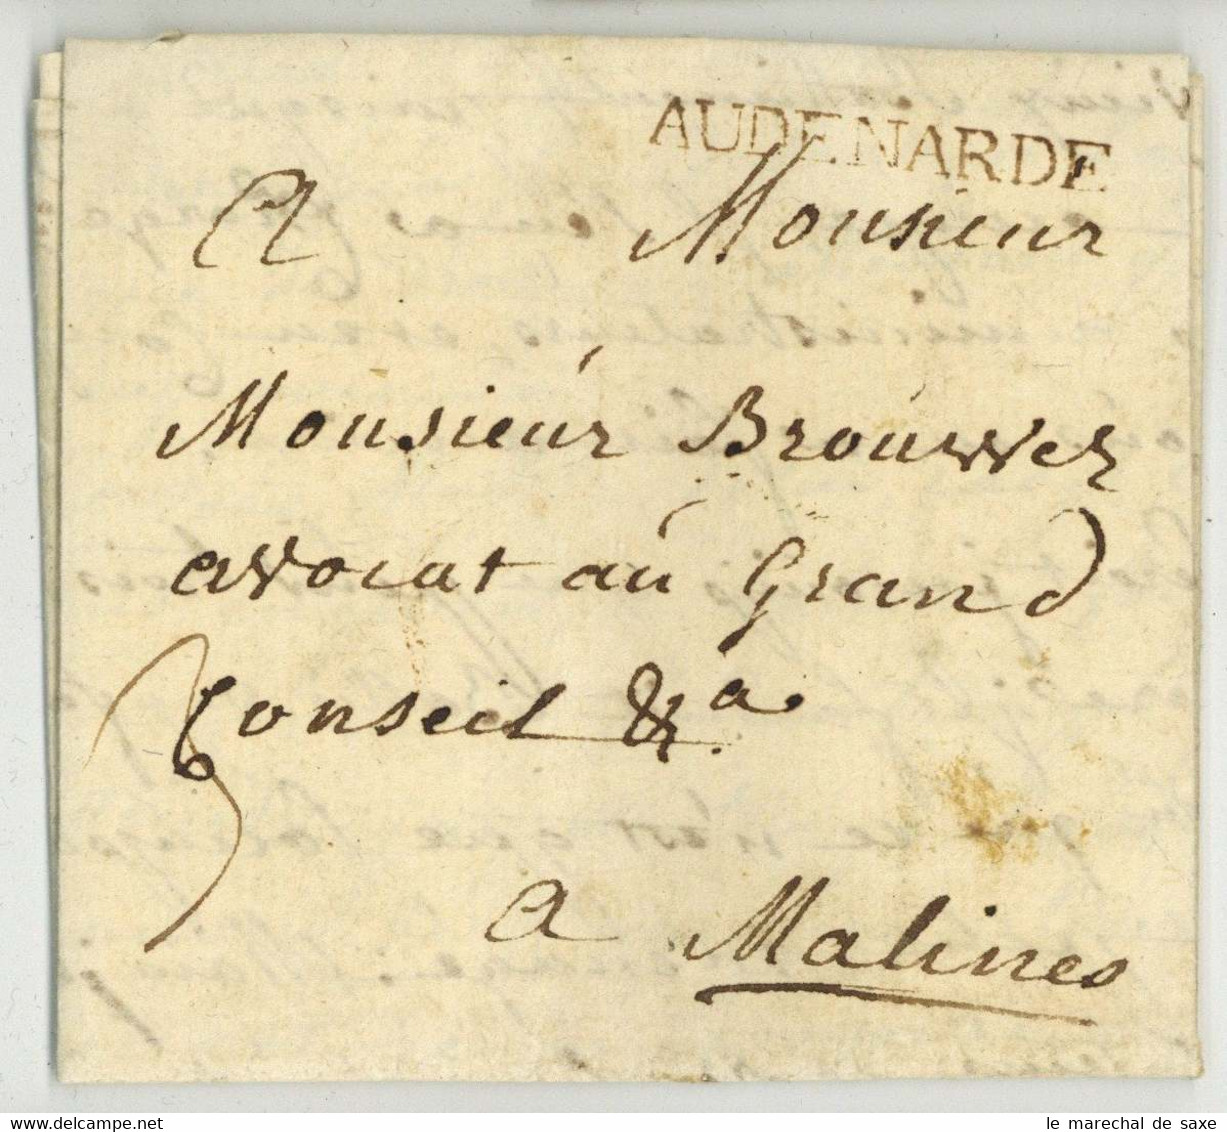 AUDENARDE
A Monsieur
Monsieur Brouwer
avocat au Grand
Conseil &a.
a Malines
le marechal de saxe